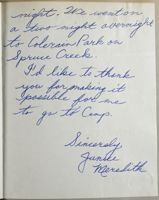 night. We went on
a two night overnight
to Coleraine Park on
Spruce Creek.
I'd like to thank
you for making it
possible for me
to go to Camp.
Sincerely,
Janile
Meredith